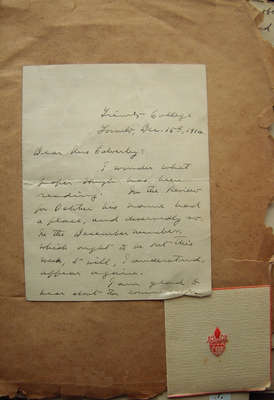 Trinity College
Toronto, Dec. 15th, 1910
Dear Mrs Calverley:
I wonder what
proper Hugh has been
reading! In the Review
for October his name had
a place, and deservedly so.
In the December number,
which ought to be out this
week, it will, I understand,
appear again.
I am glad to
hear that the